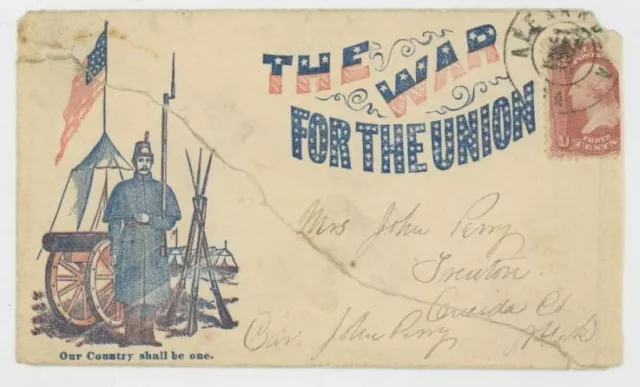 THE WAR
FOR THE UNION
ALEXAN
THREE
CENTS
Mrs John Perry
Trenton
Oneida Co
John Perry
Our Country shall be one.